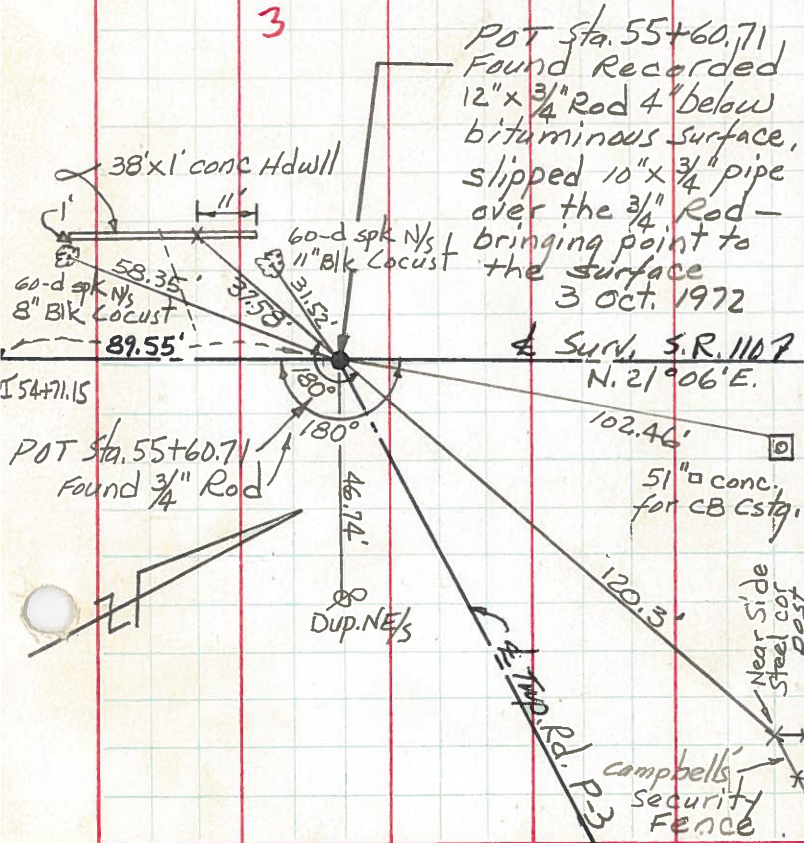 3
POT Sta. 55+60.71
Found Recorded
12" x 3/4" Rod 4" below
bituminous surface,
slipped 10" x 3/4" pipe
over the 3/4" Rod —
bringing point to
the surface
3 Oct. 1972
38'x1' conc Hdwll
11'
1'
60-d spk N/s
11" Blk Locust
60-d spk N/s
8" Blk Locust
58.35'
37.58'
31.52'
89.55'
℄ Surv. S.R. 1107
N. 21°06'E.
I 54+71.15
180°
180°
102.46'
POT Sta. 55+60.71
Found 3/4" Rod
51"□ conc.
for CB Cstg.
46.74'
Dup. NE/s
120.3'
Near Side
Steel cor
Post
℄ Twp. Rd. P-3
Campbells'
Security
Fence